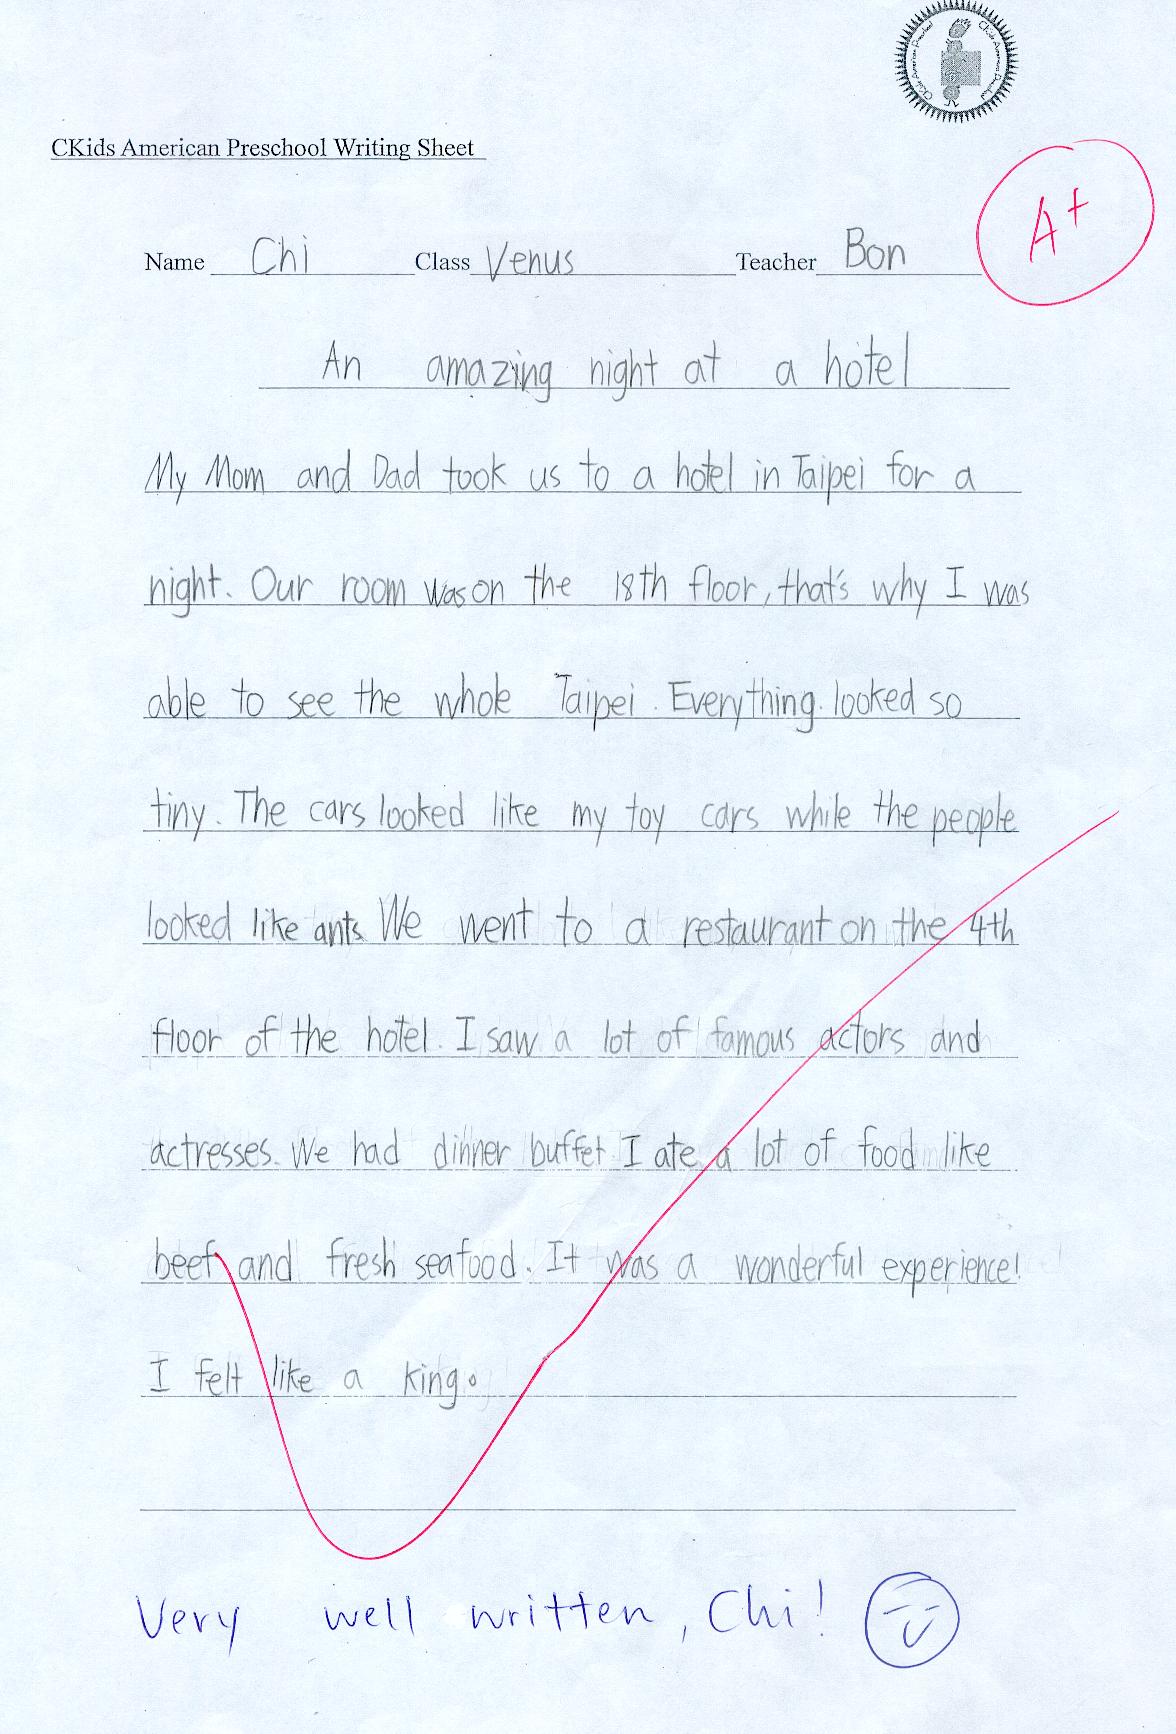 CKids American Preschool Writing Sheet
A+
Name Chi Class Venus Teacher Bon
An amazing night at a hotel
My Mom and Dad took us to a hotel in Taipei for a
night. Our room was on the 18th floor, that's why I was
able to see the whole Taipei. Everything looked so
tiny. The cars looked like my toy cars while the people
looked like ants. We went to a restaurant on the 4th
floor of the hotel. I saw a lot of famous actors and
actresses. We had dinner buffet I ate a lot of food like
beef and fresh seafood. It was a wonderful experience!
I felt like a king.
Very well written, Chi!